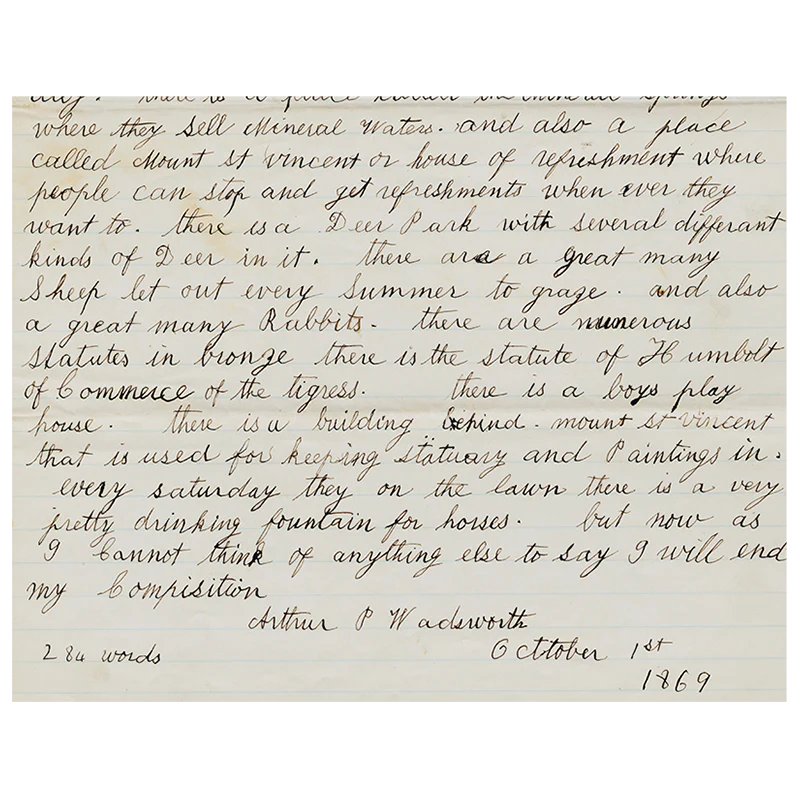 there is a place called the mineral Springs
where they sell Mineral Waters. and also a place
called Mount st vincent or house of refreshment where
people can stop and get refreshments when ever they
want to. there is a Deer Park with several differant
kinds of Deer in it. there are a great many
Sheep let out every Summer to graze. and also
a great many Rabbits. there are numerous
statutes in bronze there is the statute of Humbolt
of Commerce of the tigress. there is a boys play
house. there is a building behind. mount st vincent
that is used for keeping statuary and Paintings in.
every saturday they on the lawn there is a very
pretty drinking fountain for horses. but now as
I Cannot think of anything else to say I will end
my Compisition
Arthur P Wadsworth
284 words
Octtober 1st
1869